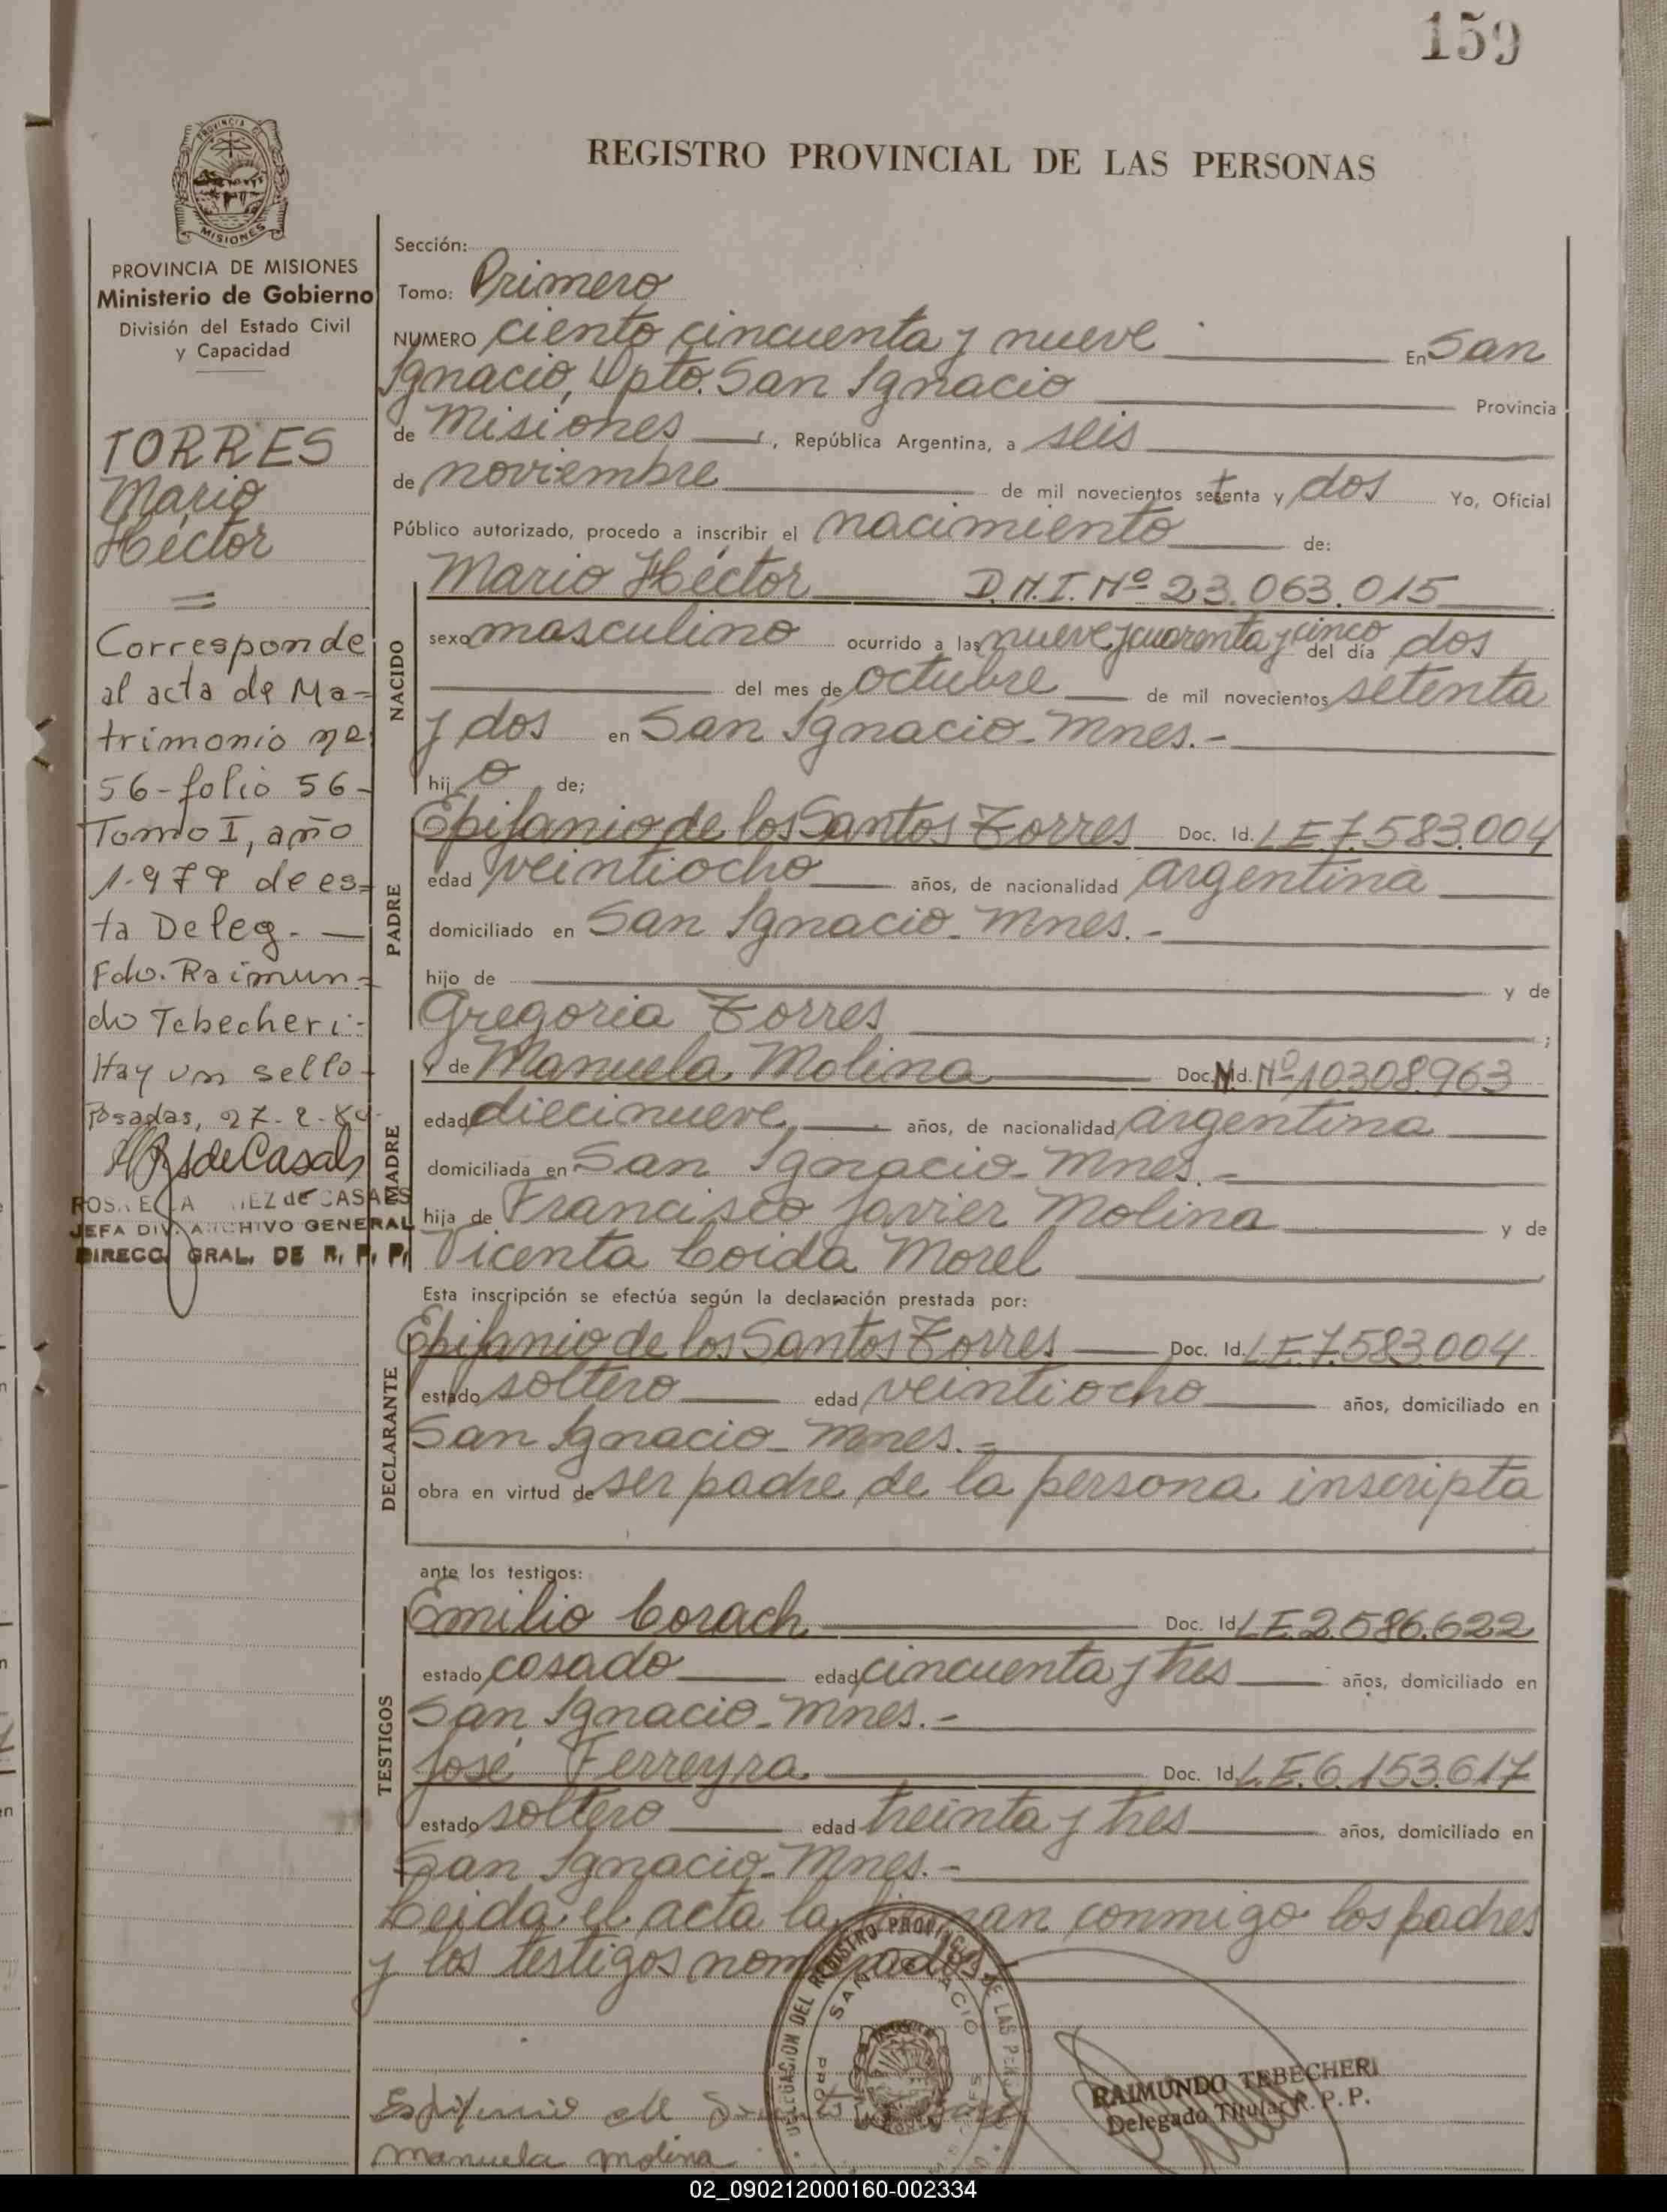 159
REGISTRO PROVINCIAL DE LAS PERSONAS
PROVINCIA DE MISIONES
Ministerio de Gobierno
División del Estado Civil
y Capacidad
TORRES
Mario
Héctor
Corresponde
al acta de Ma-
trimonio nº
56-folio 56-
Tomo I, año
1.979 de es-
ta Deleg.-
Fdo. Raimun-
do Tebecheri-
Hay un sello-
Posadas, 27-2-89
JEFA DIV. ARCHIVO GENERAL
DIRECC. GRAL. DE R. P. P.
Sección:
Tomo: Primero
NUMERO ciento cincuenta y nueve En San
Ignacio, Dpto. San Ignacio Provincia
de Misiones, República Argentina, a seis
de noviembre de mil novecientos setenta y dos Yo, Oficial
Público autorizado, procedo a inscribir el nacimiento de:
NACIDO
Mario Héctor D.N.I. Nº 23.063.015
sexo masculino ocurrido a las nueve y cuarenta y cinco del día dos
del mes de octubre de mil novecientos setenta
y dos en San Ignacio-Mnes.-
hijo de;
PADRE
Epifanio de los Santos Torres Doc. Id. L.E.7.583.004
edad veintiocho años, de nacionalidad argentina
domiciliado en San Ignacio-Mnes.-
hijo de y de
Gregoria Torres ;
MADRE
y de Manuela Molina Doc. Id. Nº 10308.963
edad diecinueve años, de nacionalidad argentina
domiciliada en San Ignacio-Mnes.-
hija de Francisco Javier Molina y de
Vicenta Loida Morel
Esta inscripción se efectúa según la declaración prestada por:
DECLARANTE
Epifanio de los Santos Torres Doc. Id. L.E.7.583.004
estado soltero edad veintiocho años, domiciliado en
San Ignacio-Mnes.-
obra en virtud de ser padre de la persona inscripta
ante los testigos:
TESTIGOS
Emilio Corach Doc. Id. L.E.2.586.622
estado casado edad cincuenta y tres años, domiciliado en
San Ignacio-Mnes.-
José Ferreyra Doc. Id. L.E.6.153.617
estado soltero edad treinta y tres años, domiciliado en
San Ignacio-Mnes.-
Leida el acta la firman conmigo los padres
y los testigos nombrados
DELEGACION DEL REGISTRO PROVINCIAL DE LAS
SAN IGNACIO
RAIMUNDO TEBECHERI
Delegado Titular R. P. P.
manuela molina
02_090212000160-002334